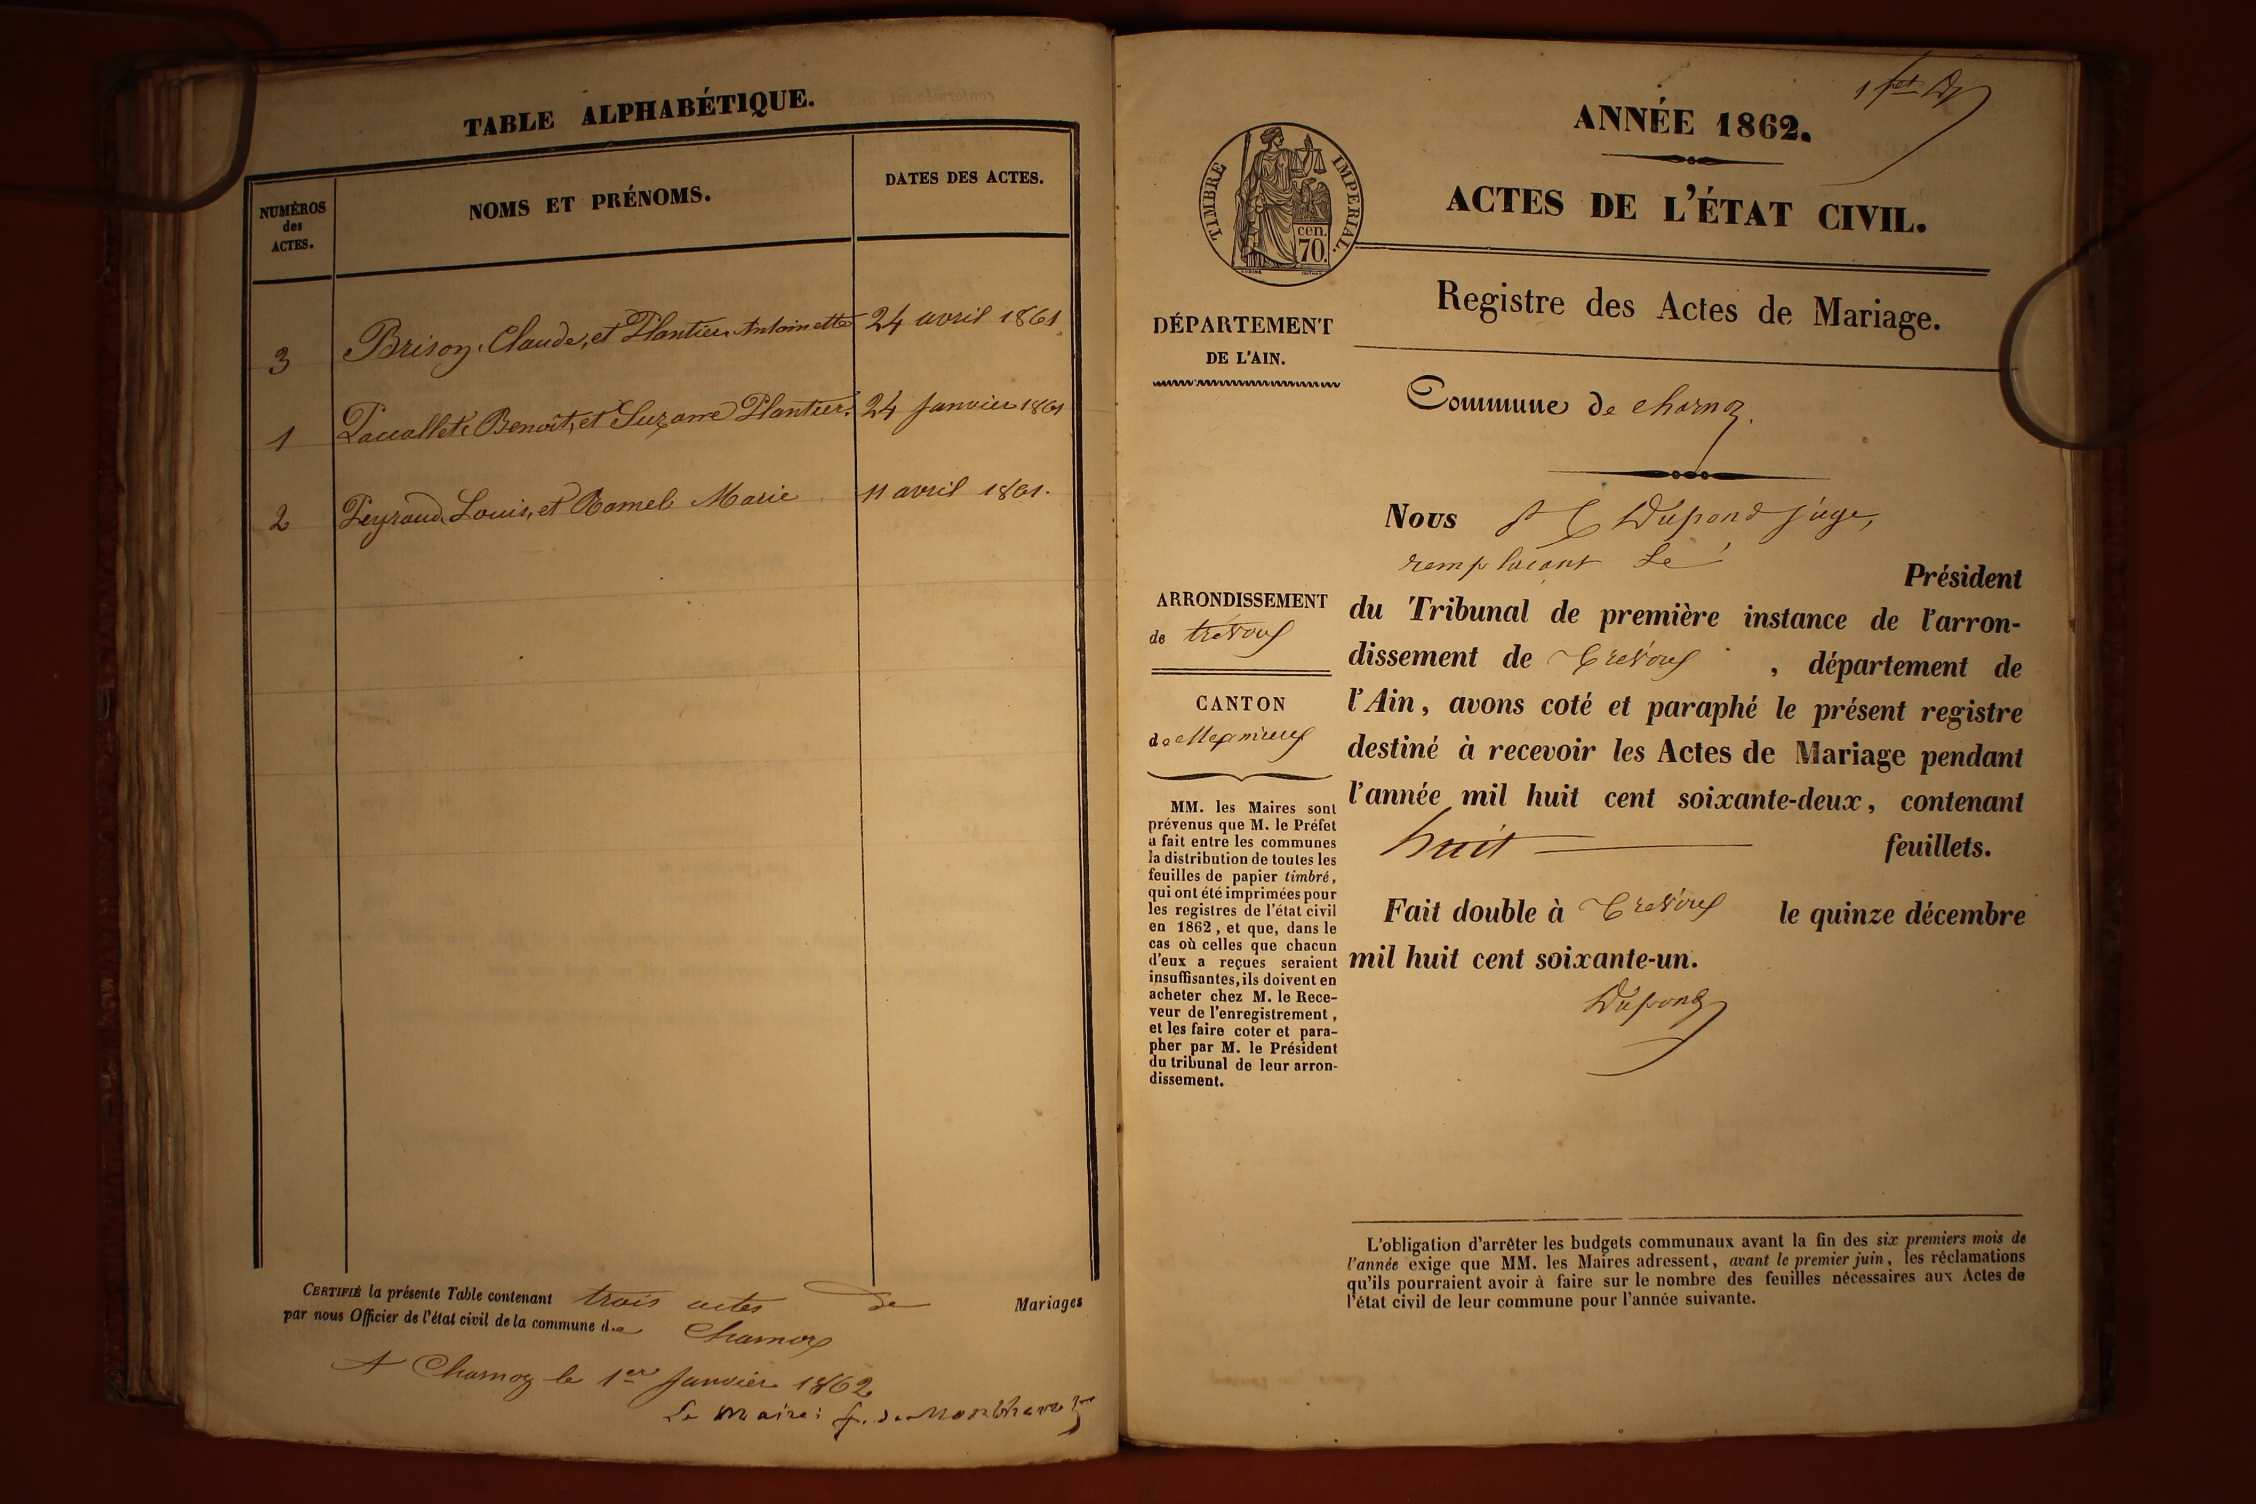 TABLE ALPHABÉTIQUE.
NUMÉROS
des
ACTES.
NOMS ET PRÉNOMS.
DATES DES ACTES.
3 Brison Claude, et Plantier Antoinette 24 avril 1861
1 Benoît, et Suzanne Plantier 24 Janvier 1861
2 Peyraud Louis, et Ramel Marie 11 avril 1861.
CERTIFIÉ la présente Table contenant trois actes de Mariages
par nous Officier de l'état civil de la commune de Charnoz
A Charnoz le 1er Janvier 1862
Le Maire:
ANNÉE 1862.
ACTES DE L'ÉTAT CIVIL.
TIMBRE IMPERIAL.
cen.
70.
Registre des Actes de Mariage.
DÉPARTEMENT
DE L'AIN.
Commune de Charnoz.
ARRONDISSEMENT
de trévoux
CANTON
de Meximieux
MM. les Maires sont
prévenus que M. le Préfet
a fait entre les communes
la distribution de toutes les
feuilles de papier timbré,
qui ont été imprimées pour
les registres de l'état civil
en 1862, et que, dans le
cas où celles que chacun
d'eux a reçues seraient
insuffisantes, ils doivent en
acheter chez M. le Rece-
veur de l'enregistrement,
et les faire coter et para-
pher par M. le Président
du tribunal de leur arron-
dissement.
Nous Dupond juge,
remplaçant le
Président
du Tribunal de première instance de l'arron-
dissement de Trévoux , département de
l'Ain, avons coté et paraphé le présent registre
destiné à recevoir les Actes de Mariage pendant
l'année mil huit cent soixante-deux, contenant
huit feuillets.
Fait double à Trévoux le quinze décembre
mil huit cent soixante-un.
Dupond
L'obligation d'arrêter les budgets communaux avant la fin des six premiers mois de
l'année exige que MM. les Maires adressent, avant le premier juin, les réclamations
qu'ils pourraient avoir à faire sur le nombre des feuilles nécessaires aux Actes de
l'état civil de leur commune pour l'année suivante.